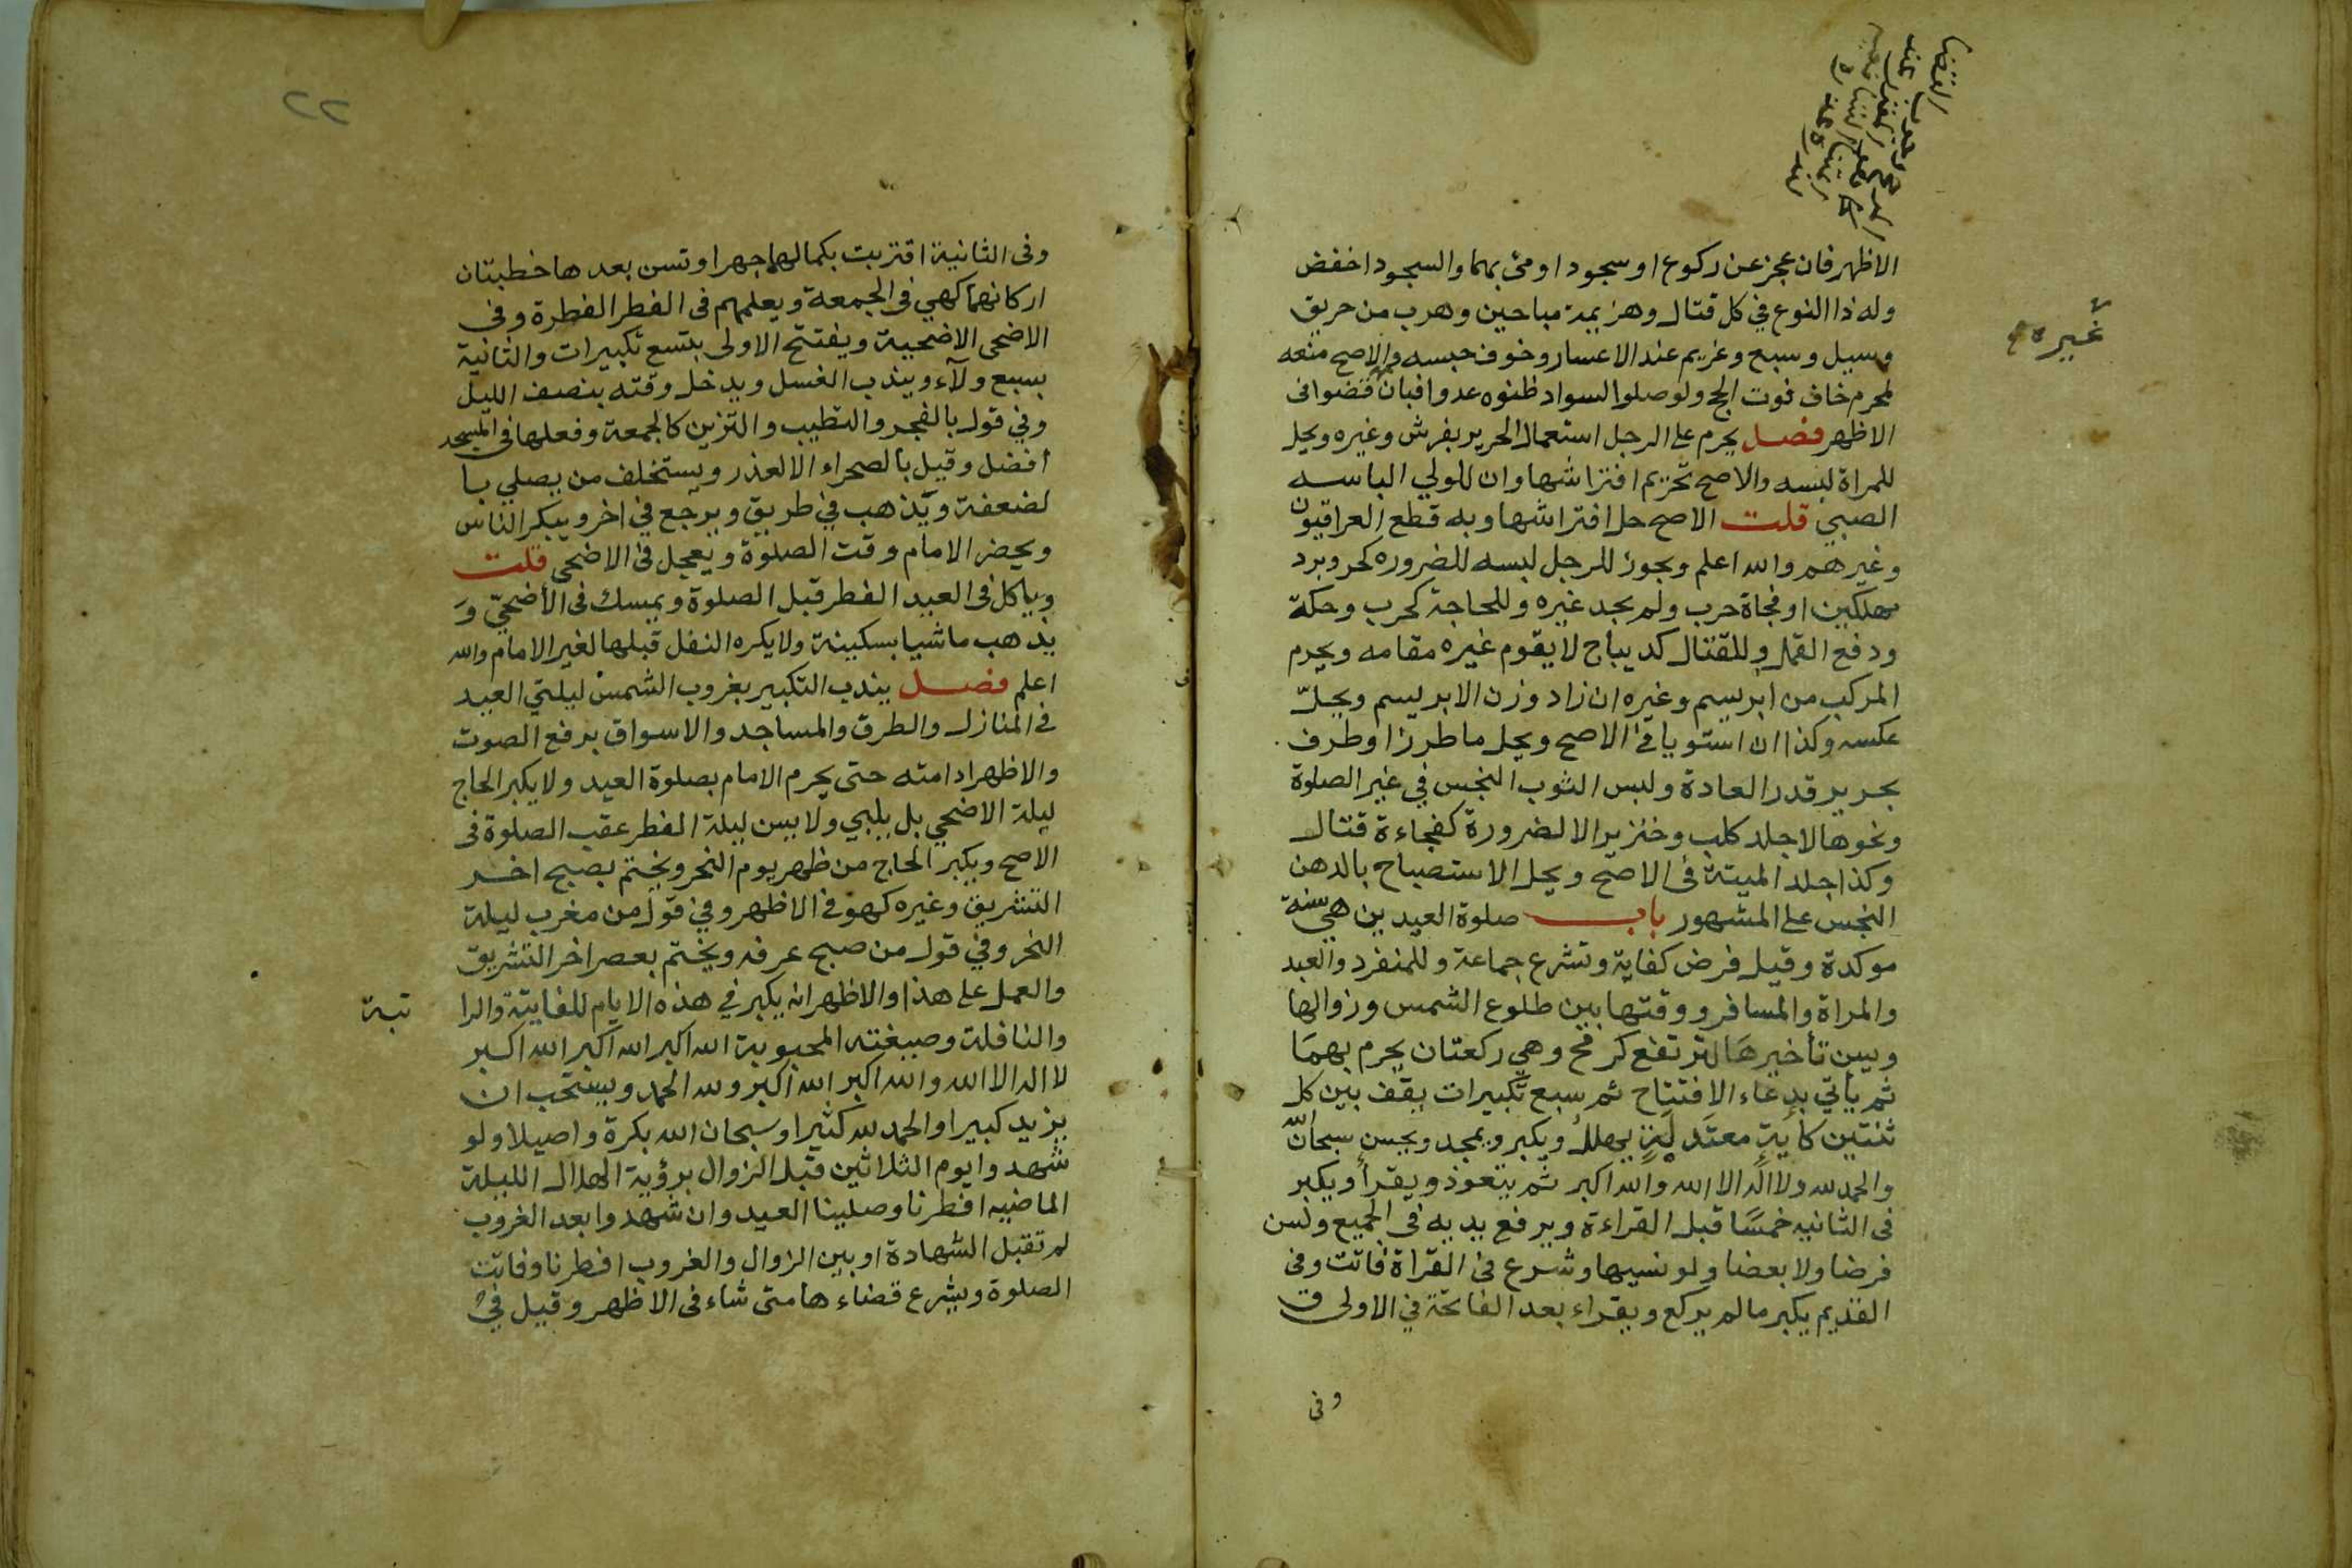 الاظهر فان عجز عن ركوع او سجود اومئ بهما والسجود اخفض
وله ذا النوع في كل قتال وهزيمة مباحين وهرب من حريق
وسيل وسبع وغريم عند الاعسار وخوف حبسه والاصح منعه
لمحرم خاف فوت الحج ولو صلوا لسواد ظنوه عدوا فبان قضوا فى
الاظهر فصل يحرم على الرجل استعمال الحرير بفرش وغيره ويحل
للمراة لبسه والاصح تحريم افتراشها وان للولي الباسه
الصبي قلت الاصح حل افتراشها وبه قطع العراقيون
وغيرهم والله اعلم ويجوز للرجل لبسه للضروره كحر وبرد
مهلكين او فجاة حرب ولم يجد غيره وللحاجة كجرب وحكة
ودفع القمل وللقتال كديباج لا يقوم غيره مقامه ويحرم
المركب من ابريسم وغيره ان زاد وزن الابريسم ويحلّ
عكسه وكذا ان استويا في الاصح ويحل ما طرز او طرف
بحرير قدر العادة ولبس الثوب النجس في غير الصلوة
ونحوها لا جلد كلب وخنزير الا لضرورة كفجاءة قتال
وكذا جلد الميتة فى الاصح ويحل الاستصباح بالدهن
النجس على المشهور باب صلوة العيدين هي سنة
موكدة وقيل فرض كفاية وتشرع جماعة وللمنفرد والعبد
والمراة والمسافر ووقتها بين طلوع الشمس وزوالها
ويسن تأخيرها لترتفع كرمح وهي ركعتان يحرم بهما
ثم ياتي بدعاء الافتتاح ثم سبع تكبيرات يقف بين كل
ثنتين كاية معتدلة يهلل ويكبر ويمجد ويحسن سبحان الله
والحمد لله ولا اله الا الله والله اكبر ثم يتعوذ ويقرأ ويكبر
فى الثانيه خمسًا قبل القراءة ويرفع يديه فى الجميع ولسن
فرضا ولا بعضا ولو نسيها وشرع فى القراة فاتت وفى
القديم يكبر ما لم يركع ويقراء بعد الفاتحة في الاولى ق
وفى
غيره
٢٢
وفى الثانية اقتربت بكمالهما جهرا وتسن بعدها خطبتان
اركانهما كهي في الجمعة ويعلمهم فى الفطر الفطرة وفى
الاضحى الاضحية ويفتتح الاولى بتسع تكبيرات والثانية
بسبع ولآء ويندب الغسل ويدخل وقته بنصف الليل
وفي قول بالفجر والتطيب والتزين كالجمعة وفعلها فى المسجد
افضل وقيل بالصحراء الا لعذر ويستخلف من يصلي با
لضعفة ويذهب في طريق ويرجع في اخر ويبكر الناس
ويحضر الامام وقت الصلوة ويعجل في الاضحى قلت
وياكل فى العيد الفطر قبل الصلوة ويمسك فى الأضحيّ وَ
يذهب ماشيا بسكينة ولا يكره النفل قبلها لغير الامام والله
اعلم فصل يندب التكبير بغروب الشمس ليلتي العيد
في المنازل والطرق والمساجد والاسواق برفع الصوت
والاظهر ادامته حتى يحرم الامام بصلوة العيد ولا يكبر الحاج
ليلة الاضحي بل يلبي ولا يسن ليلة الفطر عقب الصلوة فى
الاصح ويكبر الحاج من ظهر يوم النحر ويختم بصبح اخر
التشريق وغيره كهو في الاظهر وفي قول من مغرب ليلة
النحر وفي قول من صبح عرفه ويختم بعصر اخر التشريق
والعمل على هذا والاظهر انه يكبر في هذه الايام للفايتة والرا
تبة
والنافلة وصيغته المحبوبة الله اكبر الله اكبر الله اكبر
لا اله الا الله والله اكبر الله اكبر ولله الحمد ويستحب ان
يزيد كبيرا والحمد لله كثيرا وسبحان الله بكرة واصيلا ولو
شهدوا يوم الثلاثين قبل الزوال برؤية الهلال الليلة
الماضيه افطرنا وصلينا العيد وان شهدوا بعد الغروب
لم تقبل الشهادة او بين الزوال والغروب افطرنا وفاتت
الصلوة ويشرع قضاءها متى شاء فى الاظهر وقيل في